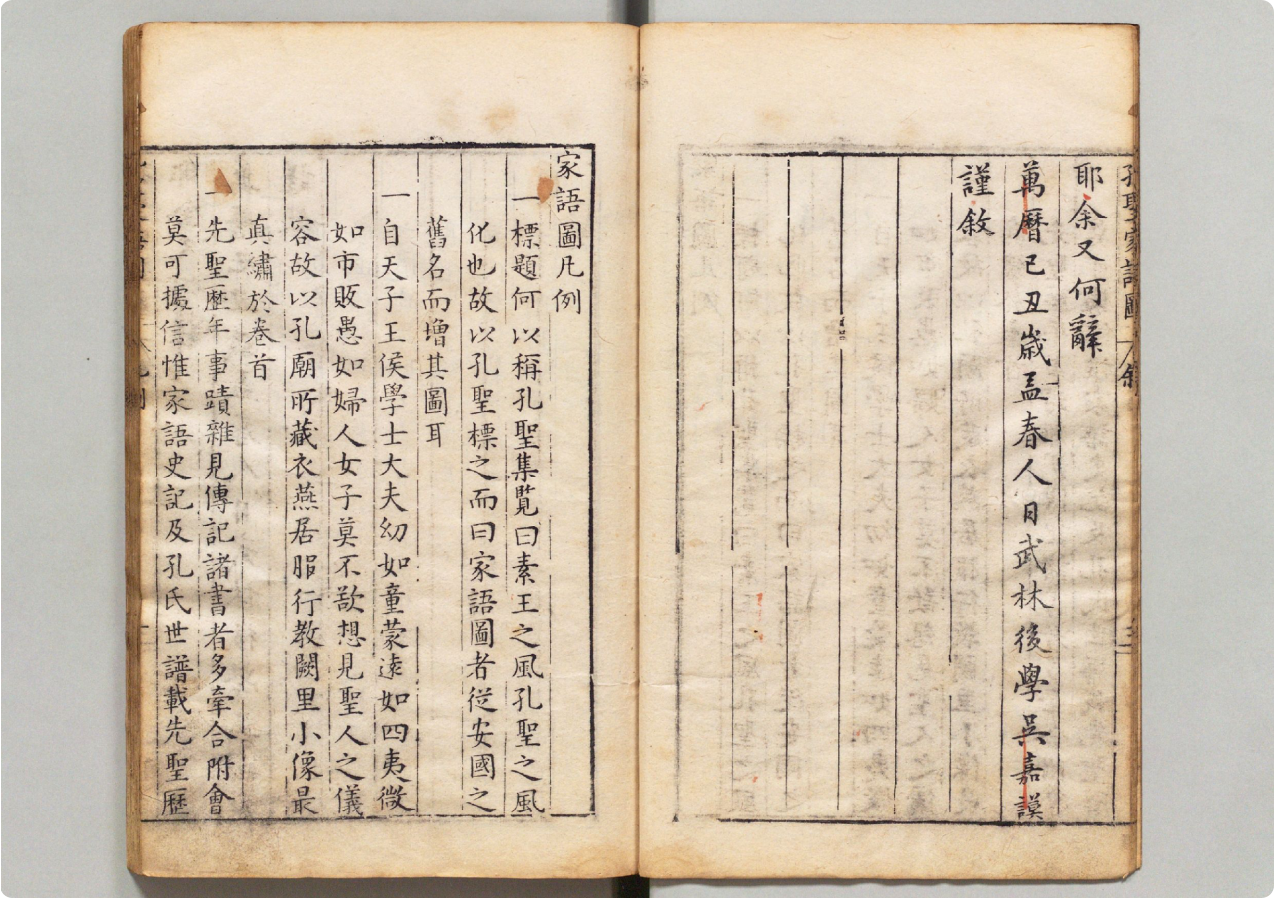 孔聖家語圖 敘 三
耶余又何辭
萬曆己丑歲孟春人日武林後學吳嘉謨
謹敘
家語圖凡例
一標題何以稱孔聖集覽曰素王之風孔聖之風
化也故以孔聖標之而曰家語圖者從安國之
舊名而增其圖耳
一自天子王侯學士大夫幼如童蒙遠如四夷微
如市販愚如婦人女子莫不欲想見聖人之儀
容故以孔廟所藏衣燕居服行教闕里小像最
真繡於卷首
一先聖歷年事蹟雜見傳記諸書者多牽合附會
莫可據信惟家語史記及孔氏世譜載先聖歷